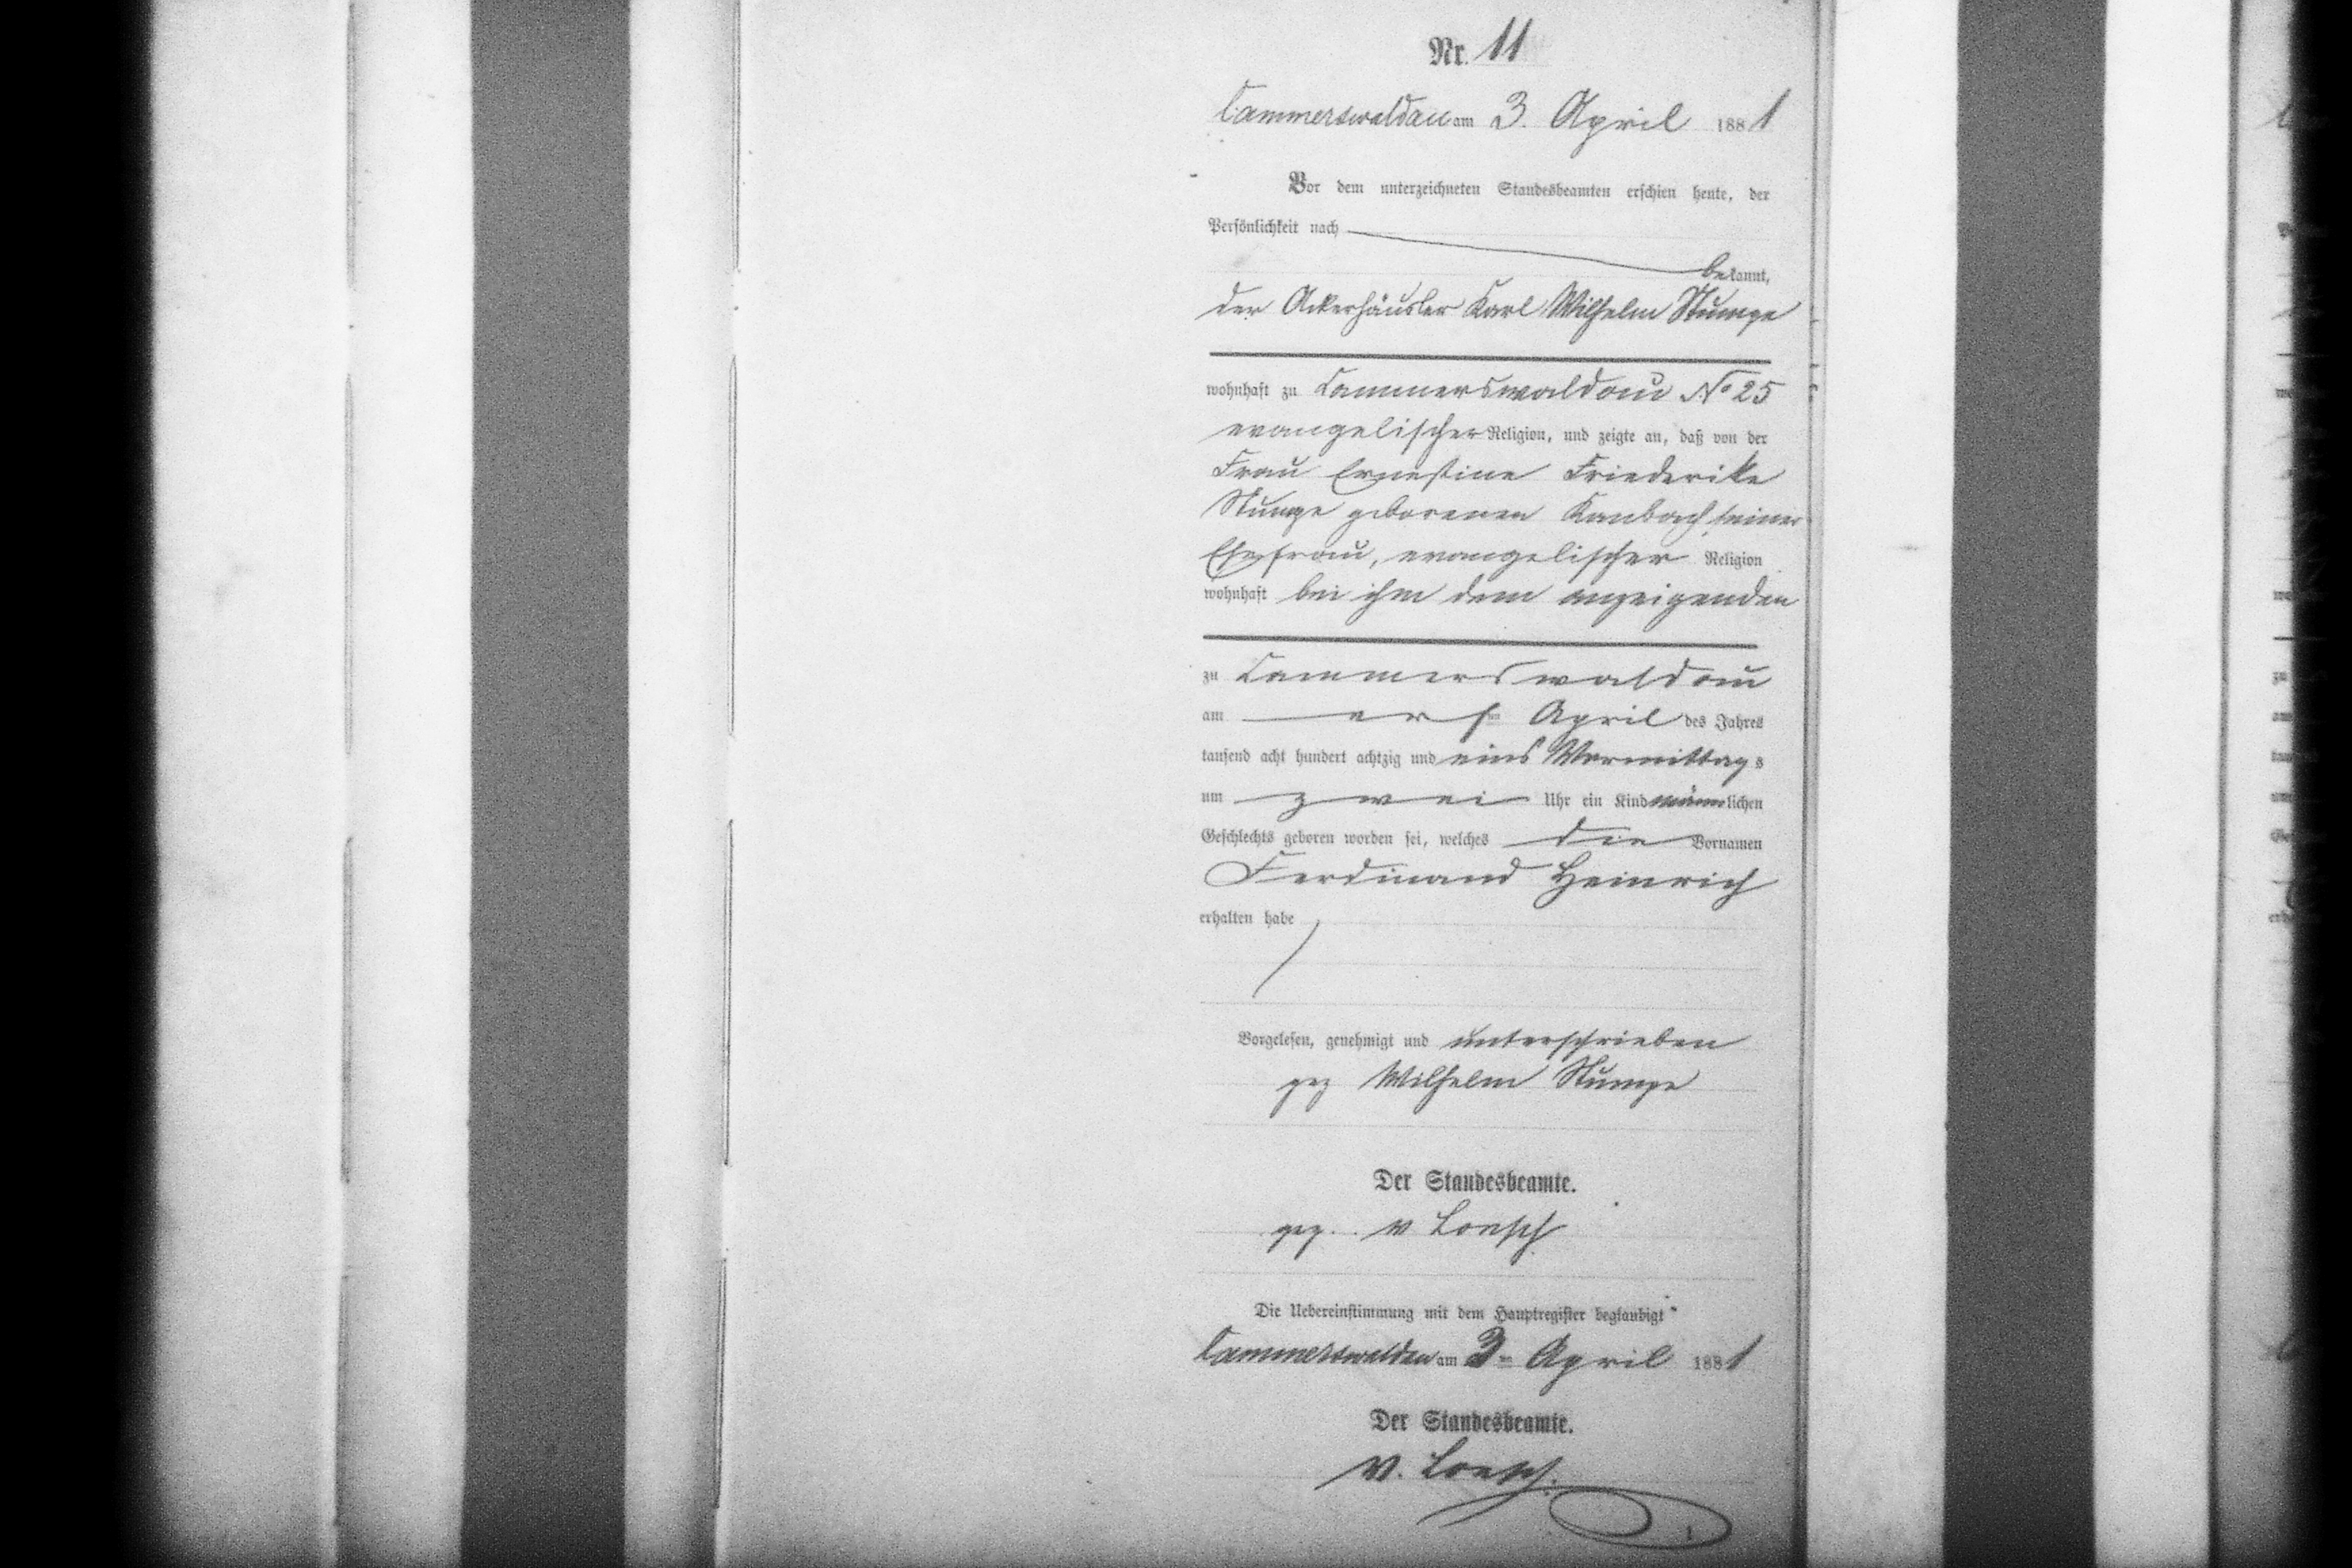 Nr. 11
Cammerswaldau am 3. April 1881
Vor dem unterzeichneten Standesbeamten erschien heute, der
Persönlichkeit nach
bekannt,
der Ackerhäusler Karl Wilhelm Stumpe
wohnhaft zu Cammerswaldau No 25
evangelischer Religion, und zeigte an, daß von der
Frau Ernestine Friederike
Stumpe geborenen Kambach seiner
Ehefrau, evangelischer Religion
wohnhaft bei ihm dem anzeigenden
zu Cammerswaldau
am April des Jahres
tausend acht hundert achtzig und eins Vormittags
um zwei Uhr ein Kind männlichen
Geschlechts geboren worden sei, welches die Vornamen
Ferdinand Heinrich
erhalten habe
Vorgelesen, genehmigt und unterschrieben
gez Wilhelm Stumpe
Der Standesbeamte.
gez. v Loesch
Die Uebereinstimmung mit dem Hauptregister beglaubigt
Cammerswaldau am 3ten April 1881
Der Standesbeamte.
v. Loesch.